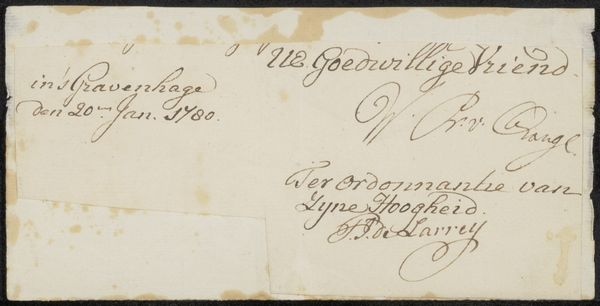 in's Gravenhage
den 20en Jan. 1780.
UE Goedwillige Vriend
W. Pr. v. Orange.
Ter ordonnantie van
Zyne Hoogheid.
T.J. de Larrey